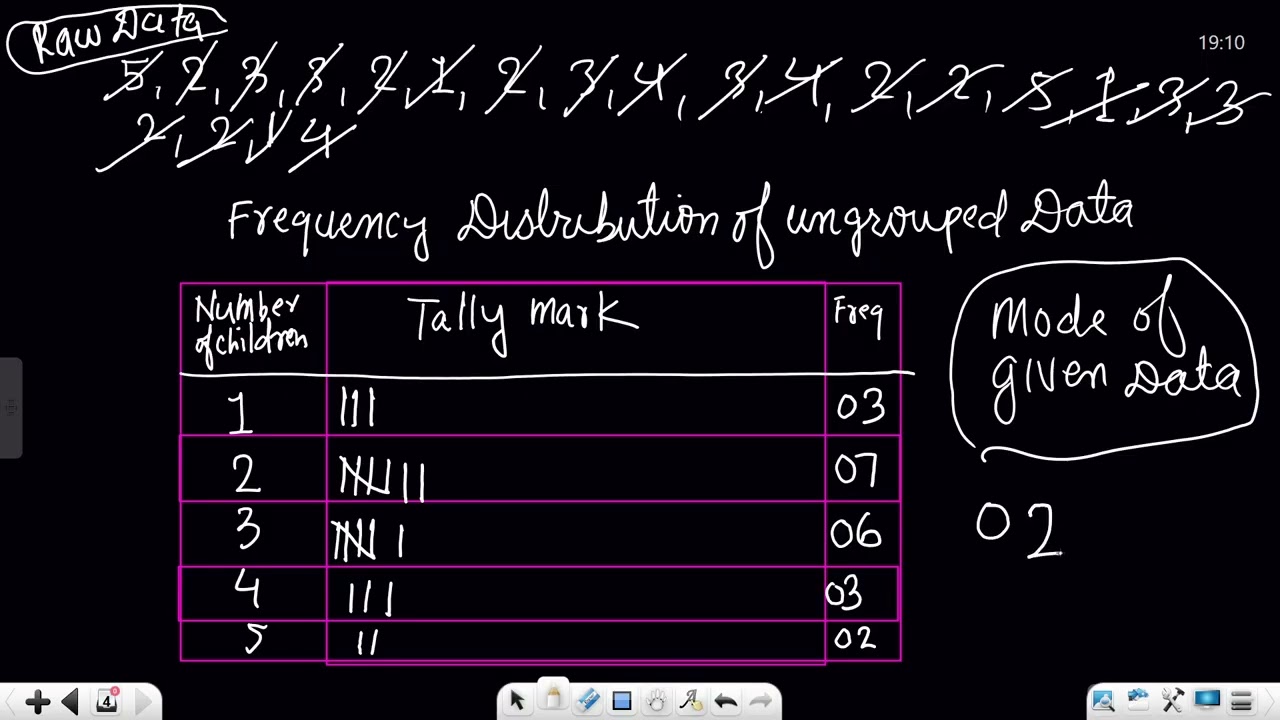 Raw Data
19:10
5, 2, 3, 3, 2, 1, 2, 3, 4, 3, 4, 2, 2, 5, 1, 3, 3
2, 2, 1 4
Frequency Distribution of ungrouped Data
Number of children Tally mark Freq
1 ||| 03
2 |||| || 07
3 |||| | 06
4 ||| 03
5 || 02
Mode of
given Data
02
4 0